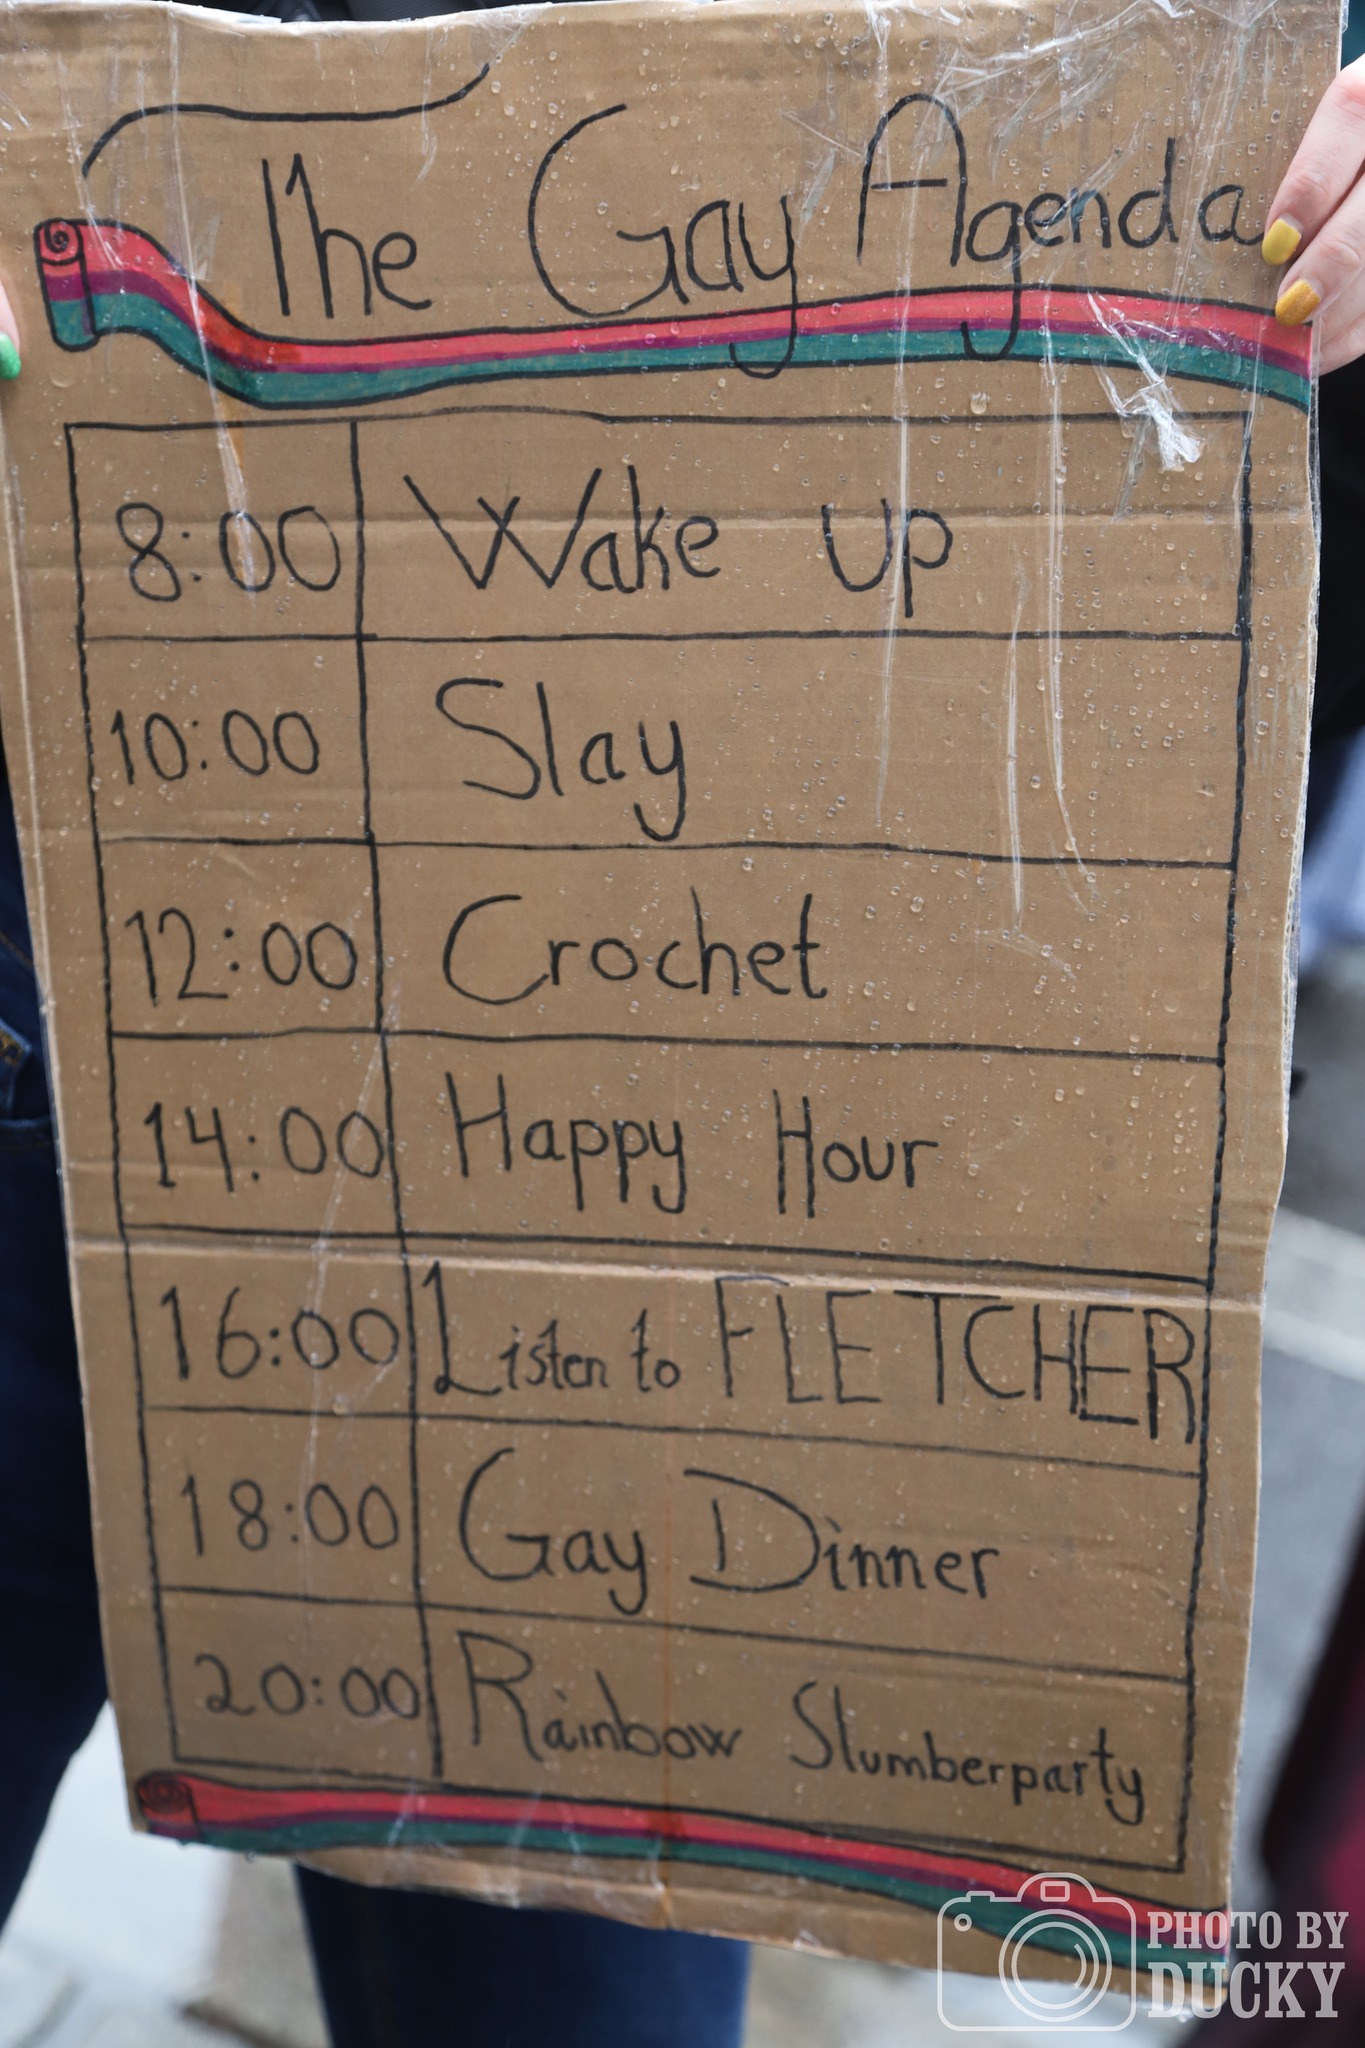 The Gay Agenda
8:00 Wake up
10:00 Slay
12:00 Crochet
14:00 Happy Hour
16:00 Listen to FLETCHER
18:00 Gay Dinner
20:00 Rainbow Slumberparty
PHOTO BY
DUCKY